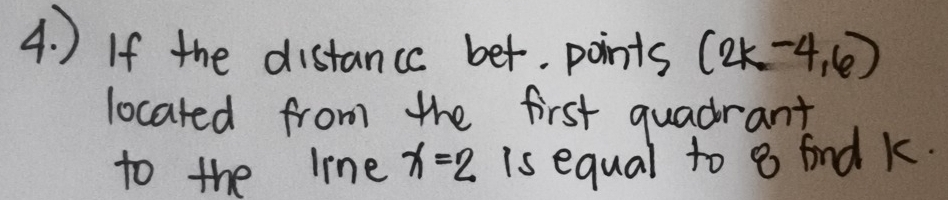 4.) If the distance bet. points (2k-4,6)
located from the first quadrant
to the line x=2 is equal to 8 find k.